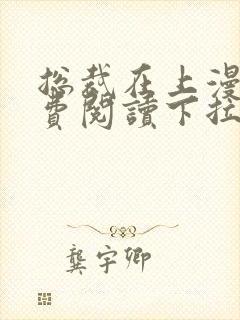 总裁在上漫
费阅读下拉
龚宇卿